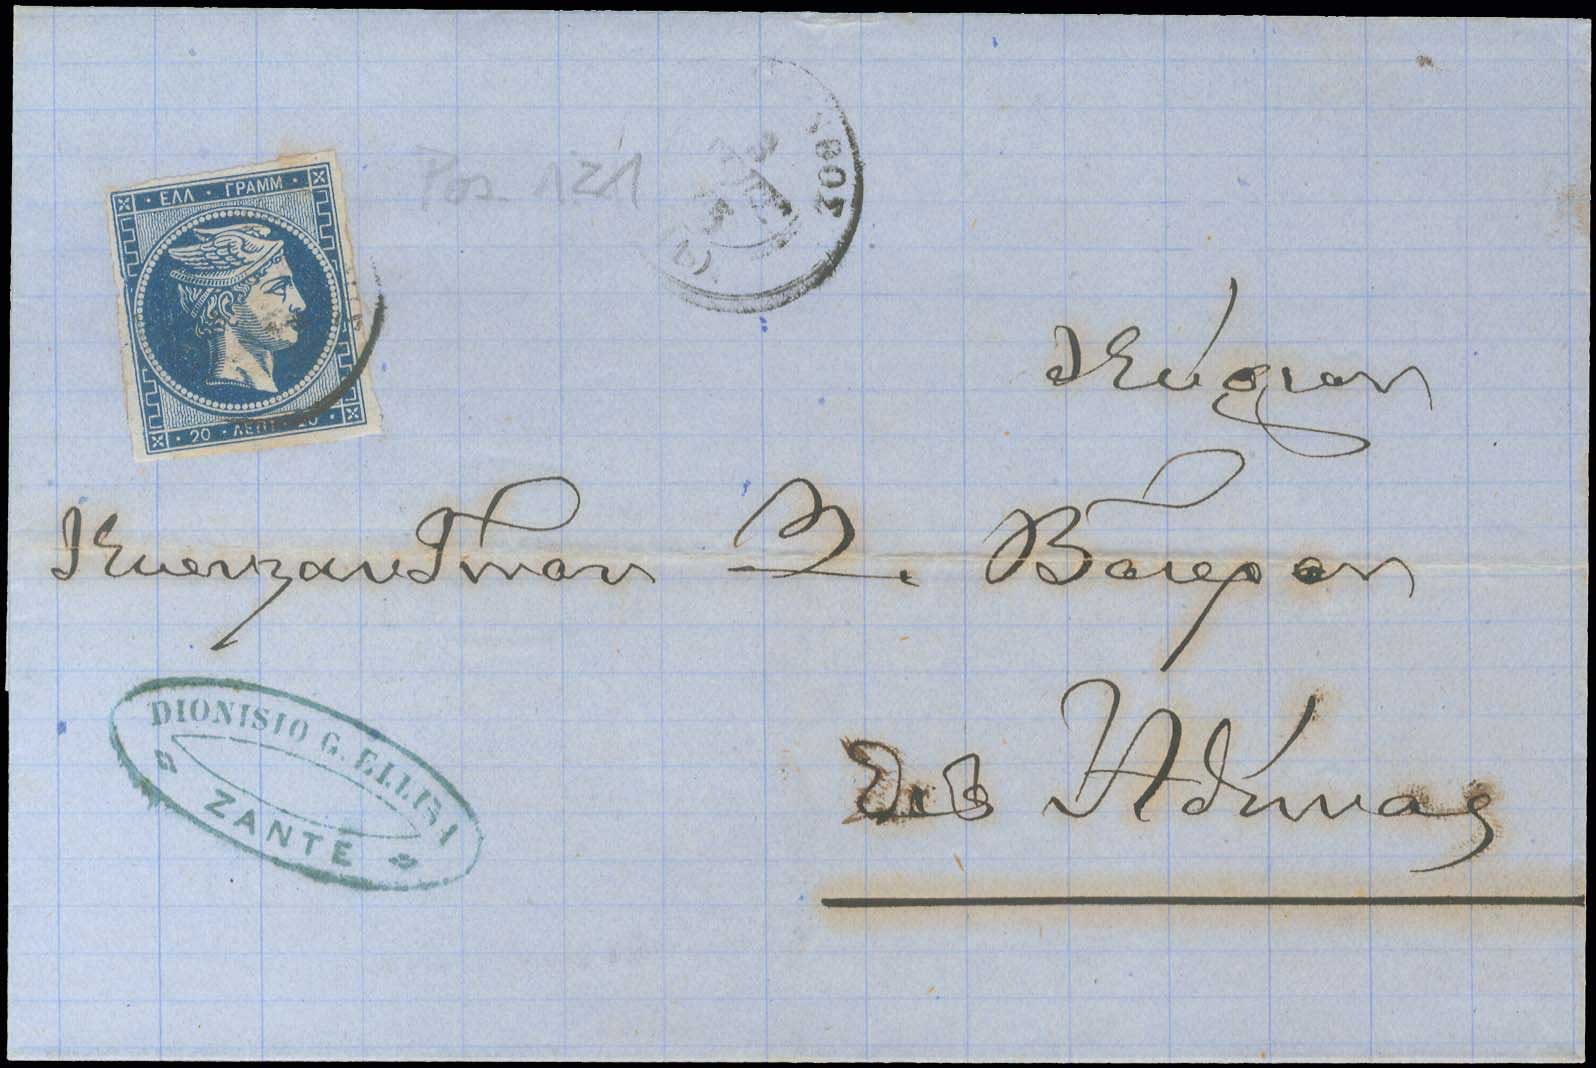 ΕΛΛ · ΓΡΑΜΜ
20 · ΛΕΠΤ · 20
Pos 121
ΘΟΣ
Κύριον
Κωνσταντῖνον Δ. Βάφαν
Εἰς Ἀθήνας
DIONISIO G. ELLINA
ZANTE